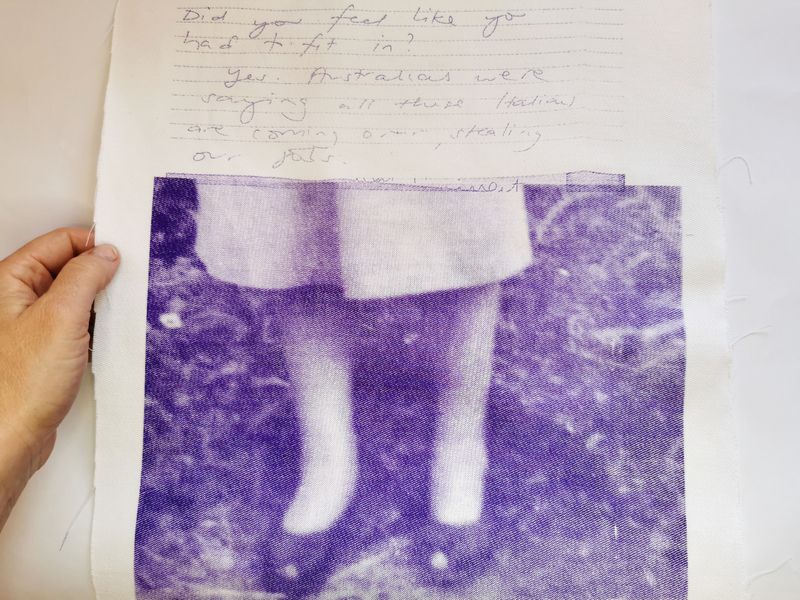 Did you feel like you
had to fit in?
Yes. Australians were
saying all these Italians
are coming over, stealing
our jobs.